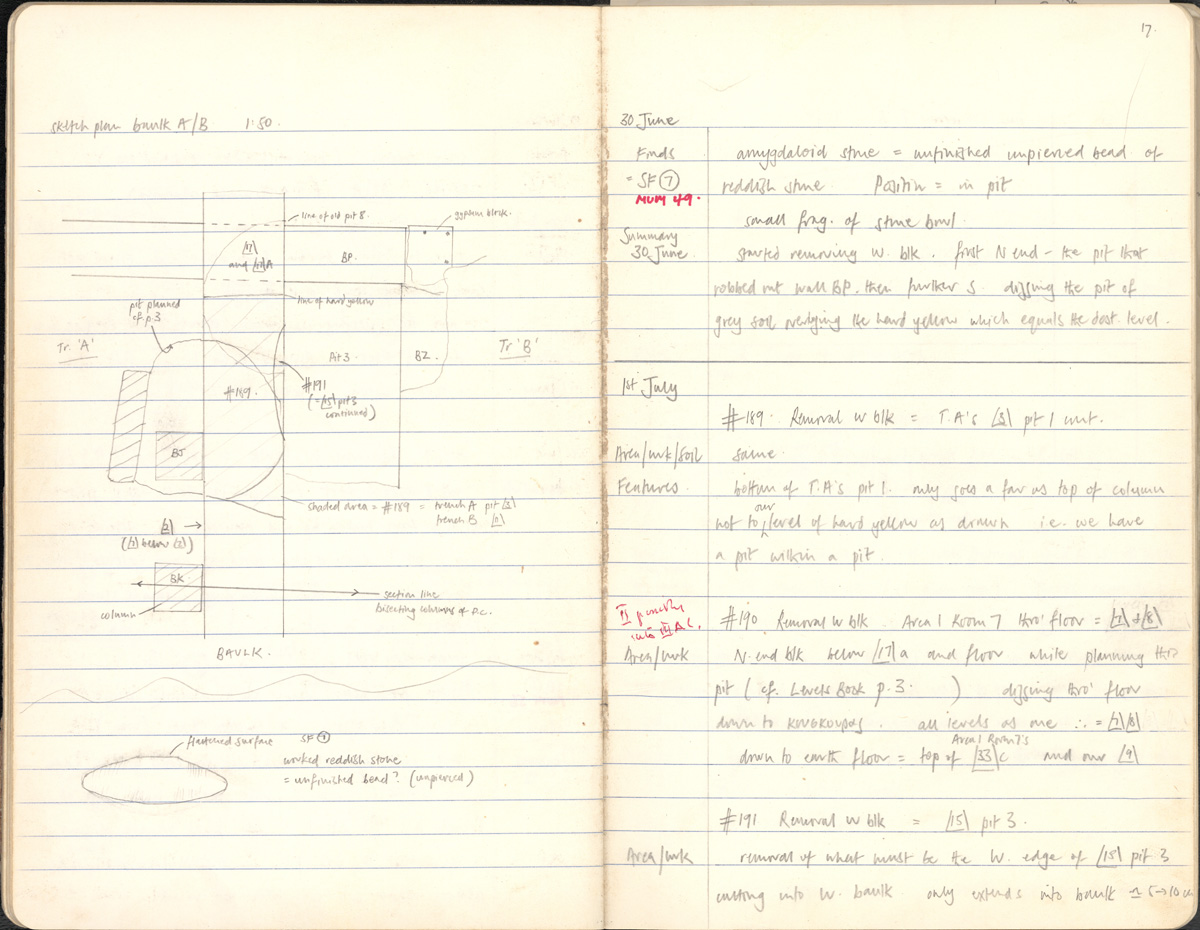 sketch plan baulk A/B 1:50.
line of old pit 8.
gypsum block.
/17\
and /17\A
BP.
pit planned
cf. p.3
line of hard yellow
Tr. 'A'
Pit 3
BZ.
Tr 'B'
#189
#191
(=/15\ pit 3
continued)
BJ
shaded area = #189 = trench A pit /3\
trench B
BK
column
section line
bisecting columns of P.C.
BAULK.
flattened surface
SF 7
worked reddish stone
= unfinished bead? (unpierced)
17.
30 June
Finds
= SF 7
MUM 49.
amygdaloid stone = unfinished unpierced bead of
reddish stone. Position = in pit
small frag. of stone bowl.
Summary
30 June
started removing W. blk. first N end - the pit that
robbed out wall BP. then further S. digging the pit of
grey soil overlying the hard yellow which equals the dest. level.
1st July
#189. Removal W blk = T.A's /3\ pit 1 cont.
Area/wk/soil same.
Features. bottom of T.A's pit 1. only goes a far as top of column
not to our level of hard yellow as drawn i.e. we have
a pit within a pit.
into III A C.
#190 Removal W blk. Area 1 Room 7 thro' floor = /7\ & /8\
Area/wk N. end blk below /17\a and floor while planning thro
pit (cf. Levels Book p.3. ) digging thro' floor
down to κουσκουρας. all levels as one ∴ = /7\ /8\
Area 1 Room 7's
down to earth floor = top of /33\c and our /9\
#191 Removal W blk = /15\ pit 3.
Area/wk removal of what must be the W. edge of /15\ pit 3
cutting into W. baulk. only extends into baulk ≃ 5→10 cm